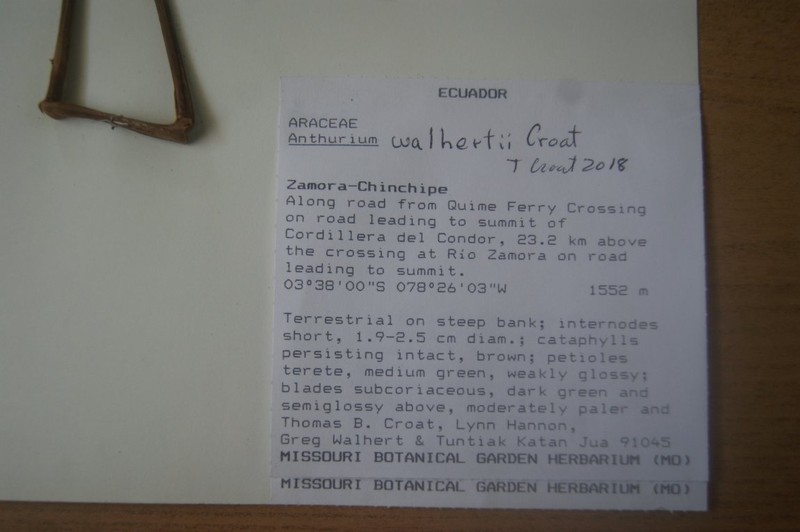 ECUADOR
ARACEAE
Anthurium walhertii Croat
T Croat 2018
Zamora-Chinchipe
Along road from Quime Ferry Crossing
on road leading to summit of
Cordillera del Condor, 23.2 km above
the crossing at Río Zamora on road
leading to summit.
03°38'00"S 078°26'03"W 1552 m
Terrestrial on steep bank; internodes
short, 1.9-2.5 cm diam.; cataphylls
persisting intact, brown; petioles
terete, medium green, weakly glossy;
blades subcoriaceous, dark green and
semiglossy above, moderately paler and
Thomas B. Croat, Lynn Hannon,
Greg Walhert & Tuntiak Katan Jua 91045
MISSOURI BOTANICAL GARDEN HERBARIUM (MO)
MISSOURI BOTANICAL GARDEN HERBARIUM (MO)